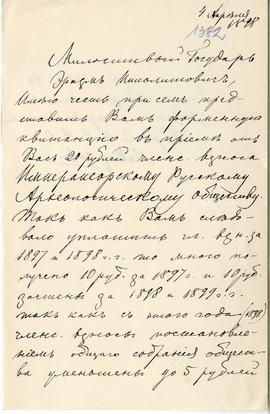 4 Апрѣля
1898
1372
Милостивый Государь
Эразмъ Ипполитовичъ,
Имѣю честь при семъ пред-
ставить Вамъ форменную
квитанцію въ пріемѣ отъ
Васъ 20 рублей членс. взноса
Императорскому Русскому
Археологическому обществу.
Такъ какъ Вамъ слѣдо-
вало уплатить чл. взн. за
1897 и 1898 г.г. то мною по-
лучено 10 руб. за 1897 г. и 10 руб.
зачтены за 1898 и 1899 г.г.
такъ какъ съ этого года (1898)
членс. взносы постановле-
ніемъ общаго собранія общест-
ва уменьшены до 5 рублей